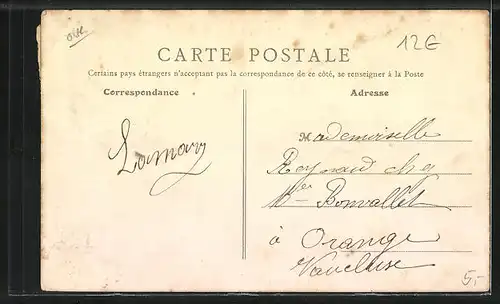 oise
12€
CARTE POSTALE
Certains pays étrangers n'acceptant pas la correspondance de ce côté, se renseigner à la Poste
Correspondance
Adresse
Mademoiselle
Reynaud chez
Bonvallet
à Orange
Vaucluse
5,-